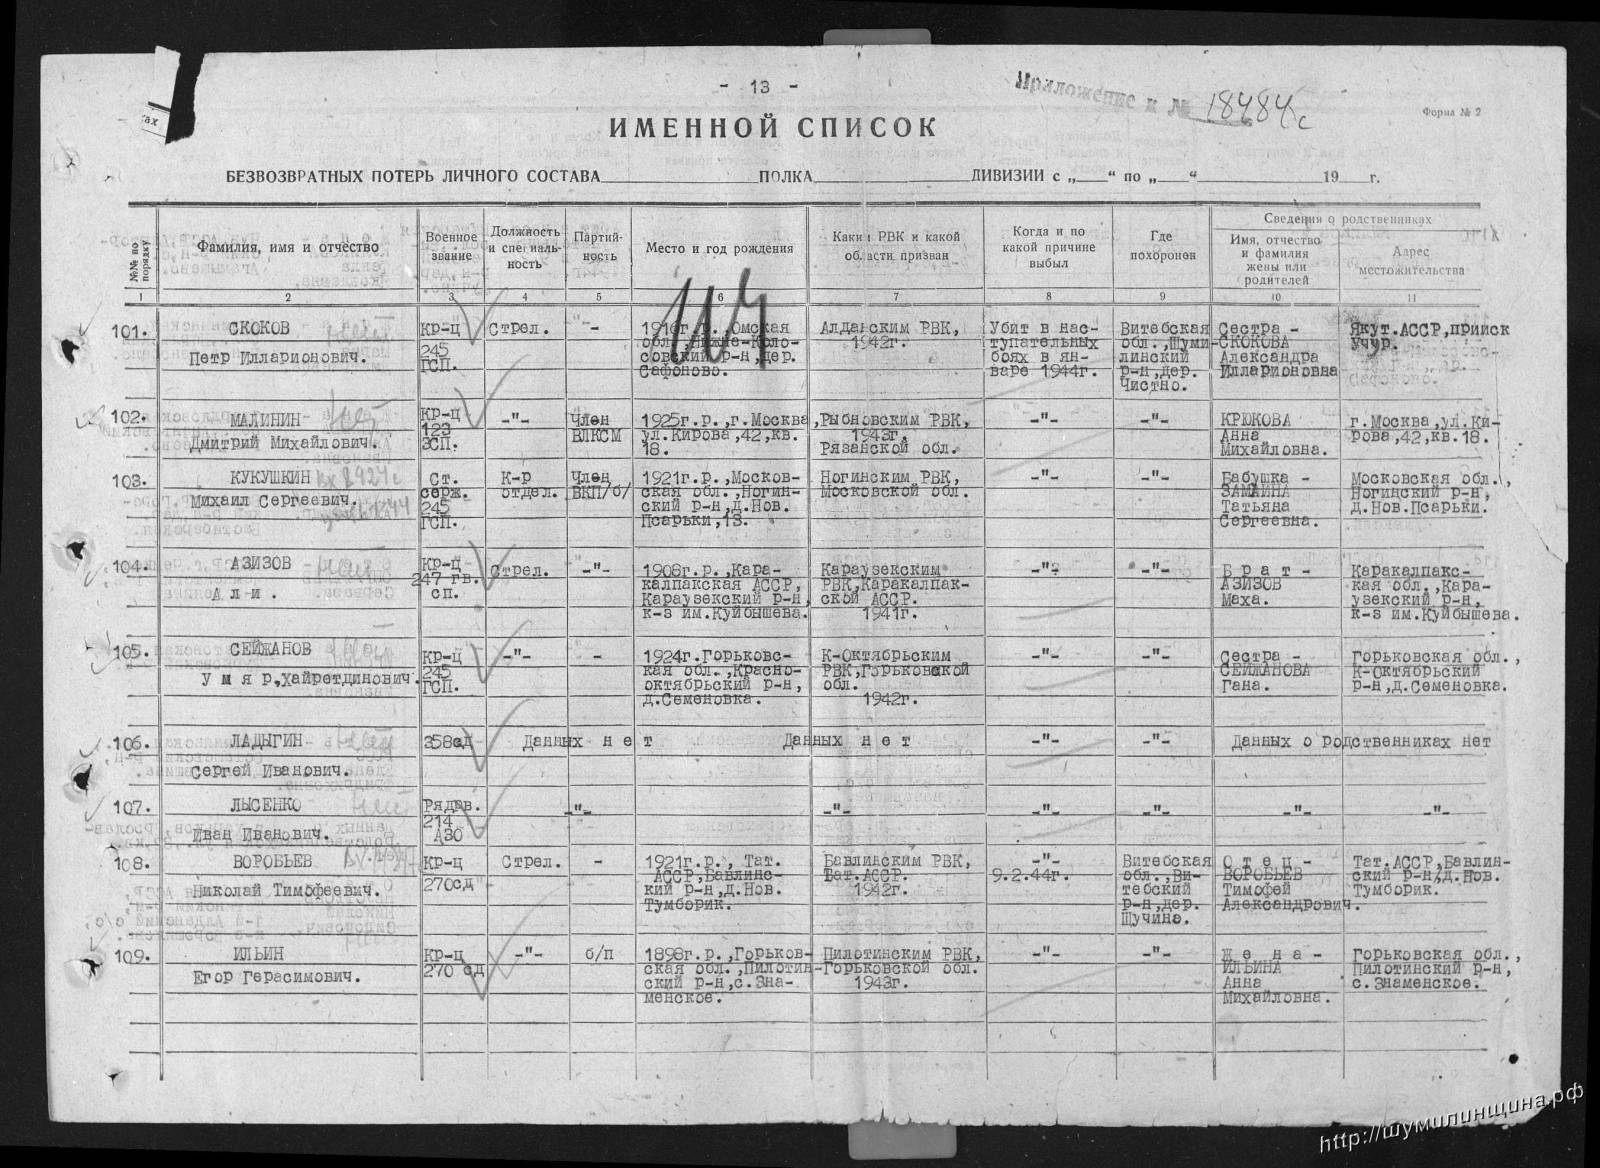 - 13 -
Приложение к № 18484с
Форма № 2
ИМЕННОЙ СПИСОК
БЕЗВОЗВРАТНЫХ ПОТЕРЬ ЛИЧНОГО СОСТАВА ПОЛКА ДИВИЗИИ с „ “ по „ “ 19 г.
№№ по порядку
Фамилия, имя и отчество
Военное звание
Должность и специальность
Партийность
Место и год рождения
Каким РВК и какой области призван
Когда и по какой причине выбыл
Где похоронен
Сведения о родственниках
Имя, отчество и фамилия жены или родителей
Адрес местожительства
1 2 3 4 5 6 7 8 9 10 11
114
101. СКОКОВ Кр-ц Стрел. - 1916г.р.,Омская Алданским РВК, Убит в нас- Витебская Сестра - Якут.АССР,прииск
245 обл.,Нижне-Коло- 1942г. тупательных обл.,Шуми- СКОКОВА Учур.
Петр Илларионович. ГСП. совский р-н,дер. боях в ян- линский Александра
Сафоново. варе 1944г. р-н,дер. Илларионовна
Чистно.
102. МАЛИНИН Кр-ц -"- Член 1925г.р.,г.Москва, Рыбновским РВК, -"- -"- КРЮКОВА г.Москва,ул.Ки-
Дмитрий Михайлович. 123 ВЛКСМ ул.Кирова,42,кв. 1943г. Анна рова,42,кв.18.
ЗСП. 18. Рязанской обл. Михайловна.
103. КУКУШКИН Ст. К-р Член 1921г.р.,Москов- Ногинским РВК, -"- -"- Бабушка - Московская обл.,
Михаил Сергеевич. серж. отдел. ВКП/б/ ская обл.,Ногин- Московской обл. ЗАМАИНА Ногинский р-н,
245 ский р-н,д.Нов. Татьяна д.Нов.Псарьки.
ГСП. Псарьки,13. Сергеевна.
104. АЗИЗОВ Кр-ц Стрел. -"- 1908г.р.,Кара- Караузекским -"- -"- Брат - Каракалпакс-
247 гв. калпакская АССР, РВК,Каракалпак- АЗИЗОВ кая обл.,Кара-
Али. сп. Караузекский р-н, ской АССР. Маха. узекский р-н,
к-з им.Куйбышева. 1941г. к-з им.Куйбышева.
105. СЕЙЖАНОВ Кр-ц -"- - 1924г.Горьковс- К-Октябрьским -"- -"- Сестра - Горьковская обл.,
Умяр,Хайретдинович. 245 кая обл.,Красно- РВК,Горьковской СЕЙЖАНОВА К-Октябрьский
ГСП. октябрьский р-н, обл. Гана. р-н,д.Семеновка.
д.Семеновка. 1942г.
106. ЛАДЫГИН 358сд Данных нет Данных нет -"- -"- Данных о родственниках нет
Сергей Иванович.
107. ЛЫСЕНКО Рядов. -"- -"- -"- -"- -"- -"-
Иван Иванович. 214
АЗО
108. ВОРОБЬЕВ Кр-ц Стрел. - 1921г.р., Тат. Бавлинским РВК, -"- Витебская Отец - Тат.АССР,Бавлин-
270сд АССР,Бавлинс- Тат.АССР. 9.2.44г. обл.,Ви- ВОРОБЬЕВ ский р-н,д.Нов.
Николай Тимофеевич. кий р-н,д.Нов. 1942г. тебский Тимофей Тумборик.
Тумборик. р-н,дер. Александрович.
Щучина.
109. ИЛЬИН Кр-ц -"- б/п 1898г.р.,Горьков- Пилотинским РВК, -"- -"- Жена - Горьковская обл.,
Егор Герасимович. 270 сд ская обл.,Пилотин- Горьковской обл. ИЛЬИНА Пилотинский р-н,
ский р-н,с.Зна- 1943г. Анна с.Знаменское.
менское. Михайловна.
http://шумилинщина.рф